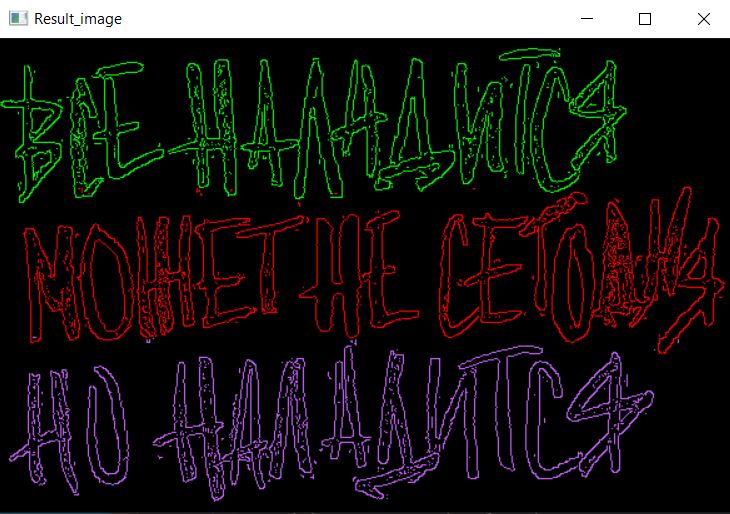 Result_image
ВСЕ НАЛАДИТСЯ
МОЖЕТ НЕ СЕГОДНЯ
НО НАЛАДИТСЯ